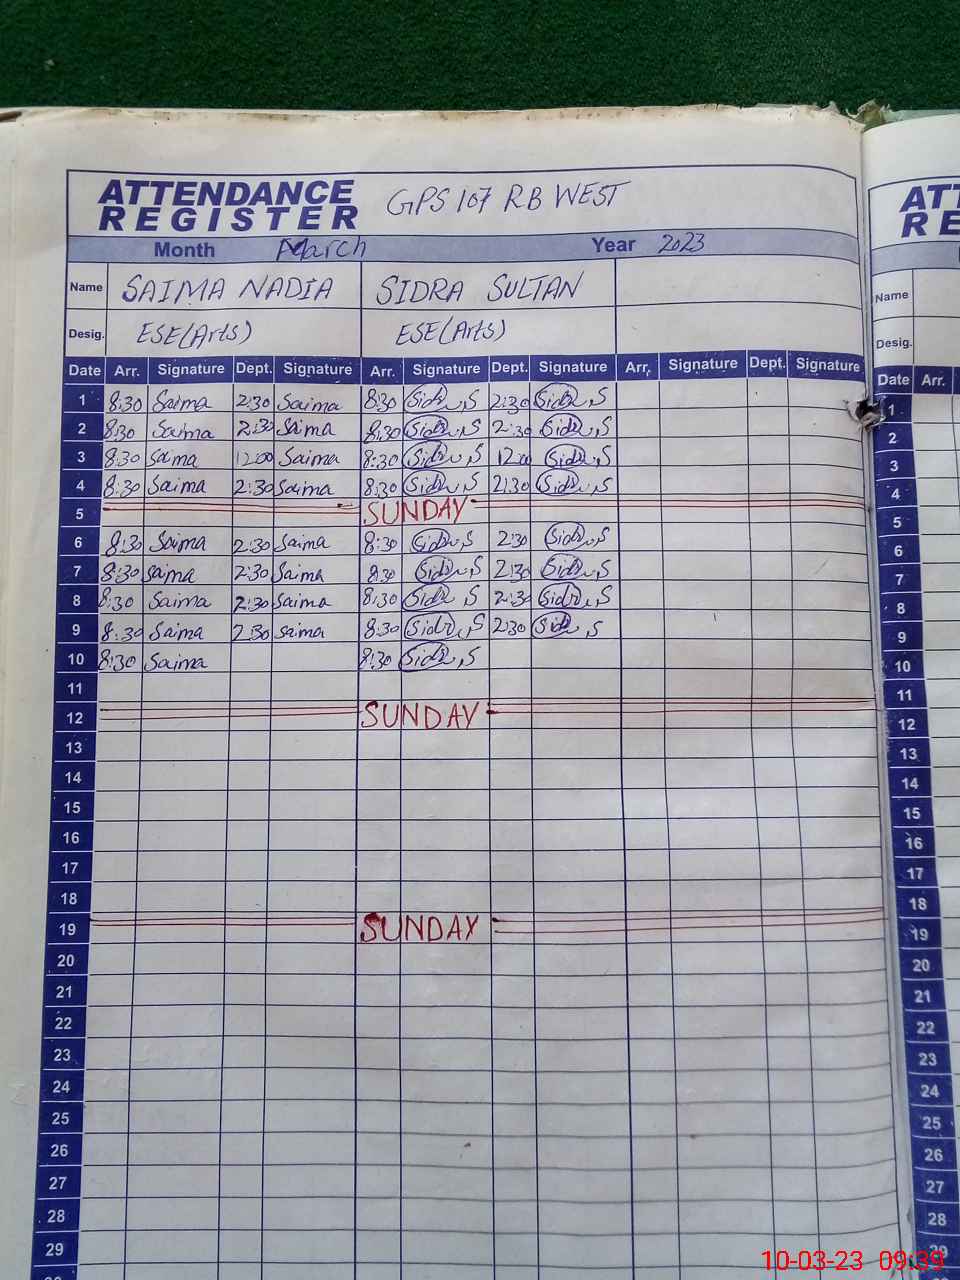 ATTENDANCE REGISTER GPS 107 RB WEST
Month March Year 2023
Name SAIMA NADIA SIDRA SULTAN
Desig. ESE(Arts) ESE(Arts)
Date Arr. Signature Dept. Signature Arr. Signature Dept. Signature Arr. Signature Dept. Signature
1 8:30 Saima 2:30 Saima 8:30 Sidra,S 2:30 Sidra,S
2 8:30 Saima 2:30 Saima 8:30 Sidra,S 2:30 Sidra,S
3 8:30 Saima 12:00 Saima 8:30 Sidra,S 12:00 Sidra,S
4 8:30 Saima 2:30 Saima 8:30 Sidra,S 2:30 Sidra,S
5 SUNDAY
6 8:30 Saima 2:30 Saima 8:30 Sidra,S 2:30 Sidra,S
7 8:30 Saima 2:30 Saima 8:30 Sidra,S 2:30 Sidra,S
8 8:30 Saima 2:30 Saima 8:30 Sidra,S 2:30 Sidra,S
9 8:30 Saima 2:30 Saima 8:30 Sidra,S 2:30 Sidra,S
10 8:30 Saima 8:30 Sidra,S
11
12 SUNDAY
13
14
15
16
17
18
19 SUNDAY
20
21
22
23
24
25
26
27
28
29
Name
Desig.
Date Arr.
1
2
3
4
5
6
7
8
9
10
11
12
13
14
15
16
17
18
19
20
21
22
23
24
25
26
27
28
10-03-23 09:39